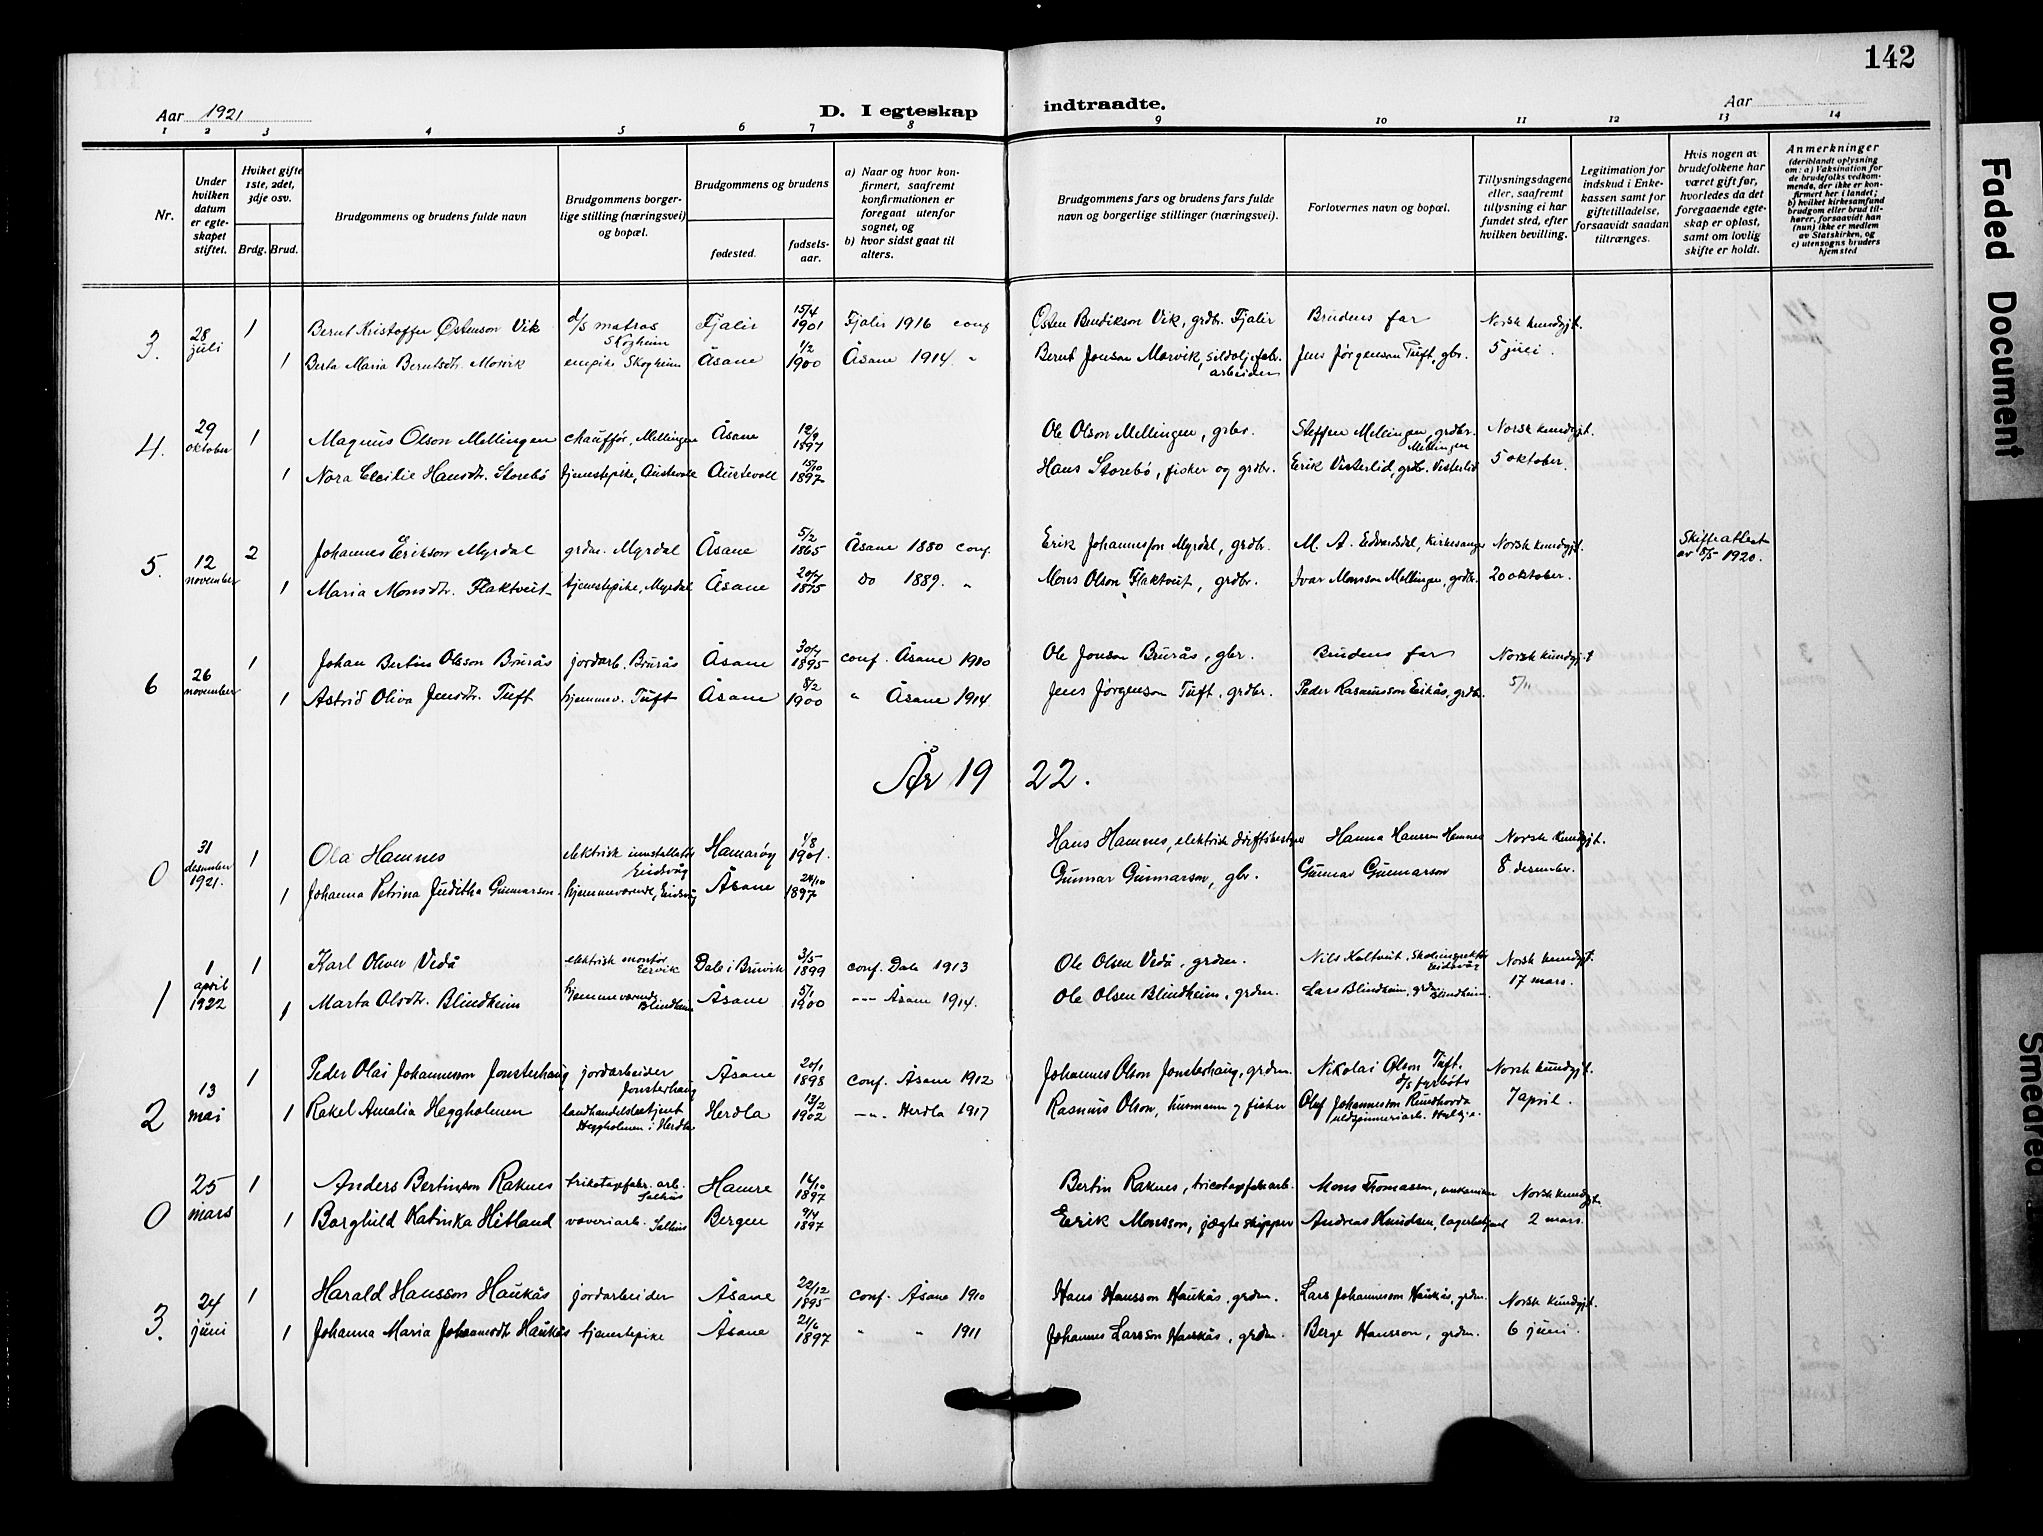 142
Aar 1921
D. I egteskap indtraadte.
Aar
1 2 3 4 5 6 7 8 9 10 11 12 13 14
Nr.
Under hvilken datum er egteskapet stiftet.
Hviket gifte 1ste, 2det, 3dje osv.
Brdg. Brud.
Brudgommens og brudens fulde navn
Brudgommens borgerlige stilling (næringsvei) og bopæl.
Brudgommens og brudens
fødested.
fødselsaar.
a) Naar og hvor konfirmert, saafremt konfirmationen er foregaat utenfor sognet, og
b) hvor sidst gaat til alters.
Brudgommens fars og brudens fars fulde navn og borgerlige stillinger (næringsvei).
Forlovernes navn og bopæl.
Tillysningsdagene eller, saafremt tillysning ei har fundet sted, efter hvilken bevilling.
Legitimation for indskud i Enkekassen samt for giftetilladelse, forsaavidt saadan tiltrænges.
Hvis nogen av brudefolkene har været gift før, hvorledes da det foregaaende egteskap er opløst, samt om lovlig skifte er holdt.
Anmerkninger
(deriblandt oplysning om: a) Vaksination for de brudefolks vedkommende, der ikke er konfirmert her i landet; b) hvilket kirkesamfund brudgom eller brud tilhører, forsaavidt han (hun) ikke er medlem av Statskirken, og c) utensogns bruders hjemsted
3. 28 juli 1 Bernt Kristoffer Østenson Vik d/s matros Skogheim Fjalir 15/4 1901 Fjalir 1916 conf Østen Bendikson Vik, grdbr. Fjalir Brudens far Norsk kundgjt.
1 Berta Maria Berntsdtr. Morvik enepike Skogheim Åsane 1/2 1900 Åsane 1914. " Bernt Jonson Morvik, sildoljefabr. arbeider Jens Jørgenson Tuft, gbr. 5 juli.
4. 29 oktober 1 Magnus Olson Mellingen chauffør, Mellingen Åsane 12/9 1897 Ole Olson Mellingen, grbr. Steffen Mellingen, grdbr. Mellingen Norsk kundgjt.
1 Nora Cecilie Hansdtr. Storebø tjenestepike, Austevoll Austevoll 15/10 1897 Hans Storebø, fisker og grdbr. Eerik Visterlid, grdbr. Visterlid 5 oktober.
5. 12 november 2 Johannes Erikson Myrdal grdm. Myrdal Åsane 5/2 1865 Åsane 1880 conf. Erik Johannesson Myrdal, grdbr. M. A. Eidvardsdal, Kirkesanger Norsk kundgjt. Skifteattest av 8/5 1920.
1 Maria Monsdtr. Flaktveit tjenestepike, Myrdal Åsane 20/7 1875 Do 1889. " Mons Olson Flaktveit, grdbr. Ivar Monsson Mellingen, grdbr. 20 oktober.
6 26 november 1 Johan Bertin Olsson Brurås jordarb. Brurås Åsane 30/7 1895 conf. Åsane 1910 Ole Jonson Brurås, gbr. Brudens far Norsk kundgjt
1 Astrid Oliva Jensdtr. Tuft hjemmev. Tuft Åsane 8/2 1900 " Åsane 1914 Jens Jørgenson Tuft, grdbr. Peder Rasmusson Eikås, grdbr. 5/11
År 1922.
0 31 desember 1921. 1 Ola Hamnes elektrisk innstallatør Eidsvåg Hamarøy 1/8 1901. Hans Hamnes, elektrisk driftsbestyrer Hanna Hansen Hamnes Norsk kundgjt.
1 Johanna Petrina Juditha Gunnarson hjemmeværende, Eidsvåg Åsane 24/10 1897 Gunnar Gunnarson, gbr. Gunnar Gunnarson 8 desember.
1 1 april 1922 1 Karl Oliver Vedå elektrisk montør Eervik Dale i Bruvik 3/5 1899 conf. Dale 1913 Ole Olsen Vedå, grdm. Nils Kaltveit, Skoleinspektør Eidsvåg Norsk kundgjt.
1 Marta Olsdtr. Blindheim hjemmeværende Blindheim Åsane 5/1 1900 --- Åsane 1914. Ole Olsen Blindheim, grdm. Lars Blindheim, grdm. Blindheim. 17 mars.
2 13 mai 1 Peder Olai Johannesson Jonsterhaug jordarbeider Jonsterhaug Åsane 20/1 1898 conf. Åsane 1912 Johannes Olson Jonsterhaug, grdm. Nikolai Olson Tuft. d/s fyrbøter Norsk kundgjt.
1 Rakel Amalia Heggholmen landhandelsbetjent Heggholmen i Herdla Herdla 13/2 1902 --- Herdla 1917 Rasmus Olson, husmann og fisker Oluf Johannesson Rundhovda 7 april.
0 25 mars 1 Anders Bertinson Raknes trikotagefabr. arb. Salhus Hamre 14/10 1897 Bertin Raknes, tricotagefabr.arb. Mons Thomasson, Norsk kundgjt.
1 Borghild Katinka Hitland væveriarb. Salhus Bergen 9/4 1897 Eerik Monsson, jægteskipper Andreas Knudsen, lagerbetjent 2 mars.
3. 24 juni 1 Harald Hansson Haukås jordarbeider Åsane 22/12 1895 conf. Åsane 1910 Hans Hansson Haukås, grdm. Lars Johannesson Haukås, grdm. Norsk kundgjt.
1 Johanna Maria Johannesdtr Haukås tjenestepike Åsane 21/6 1897 " " 1911 Johannes Larsson Haukås, grdm. Berge Hansson, grdm. 6 juni.
Faded Document
Smeared